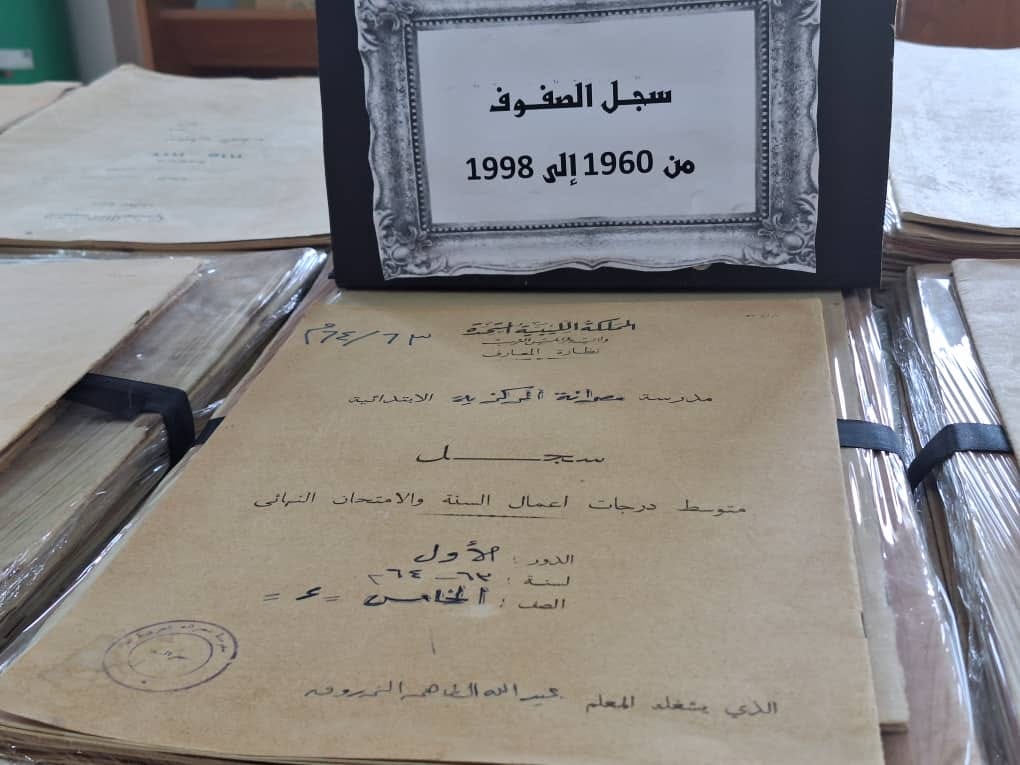 سجل الصفوف
من 1960 إلى 1998
المملكة الليبية المتحدة
٦٤/٦٣م
نظارة المعارف
مدرسة مصراتة المركزية الابتدائية
سجل
متوسط درجات اعمال السنة والامتحان النهائى
الدور : الأول
لسنة : ٦٣ - ٦٤م
الصف : الخامس
الذي يشغله المعلم عبد الله الطاهر